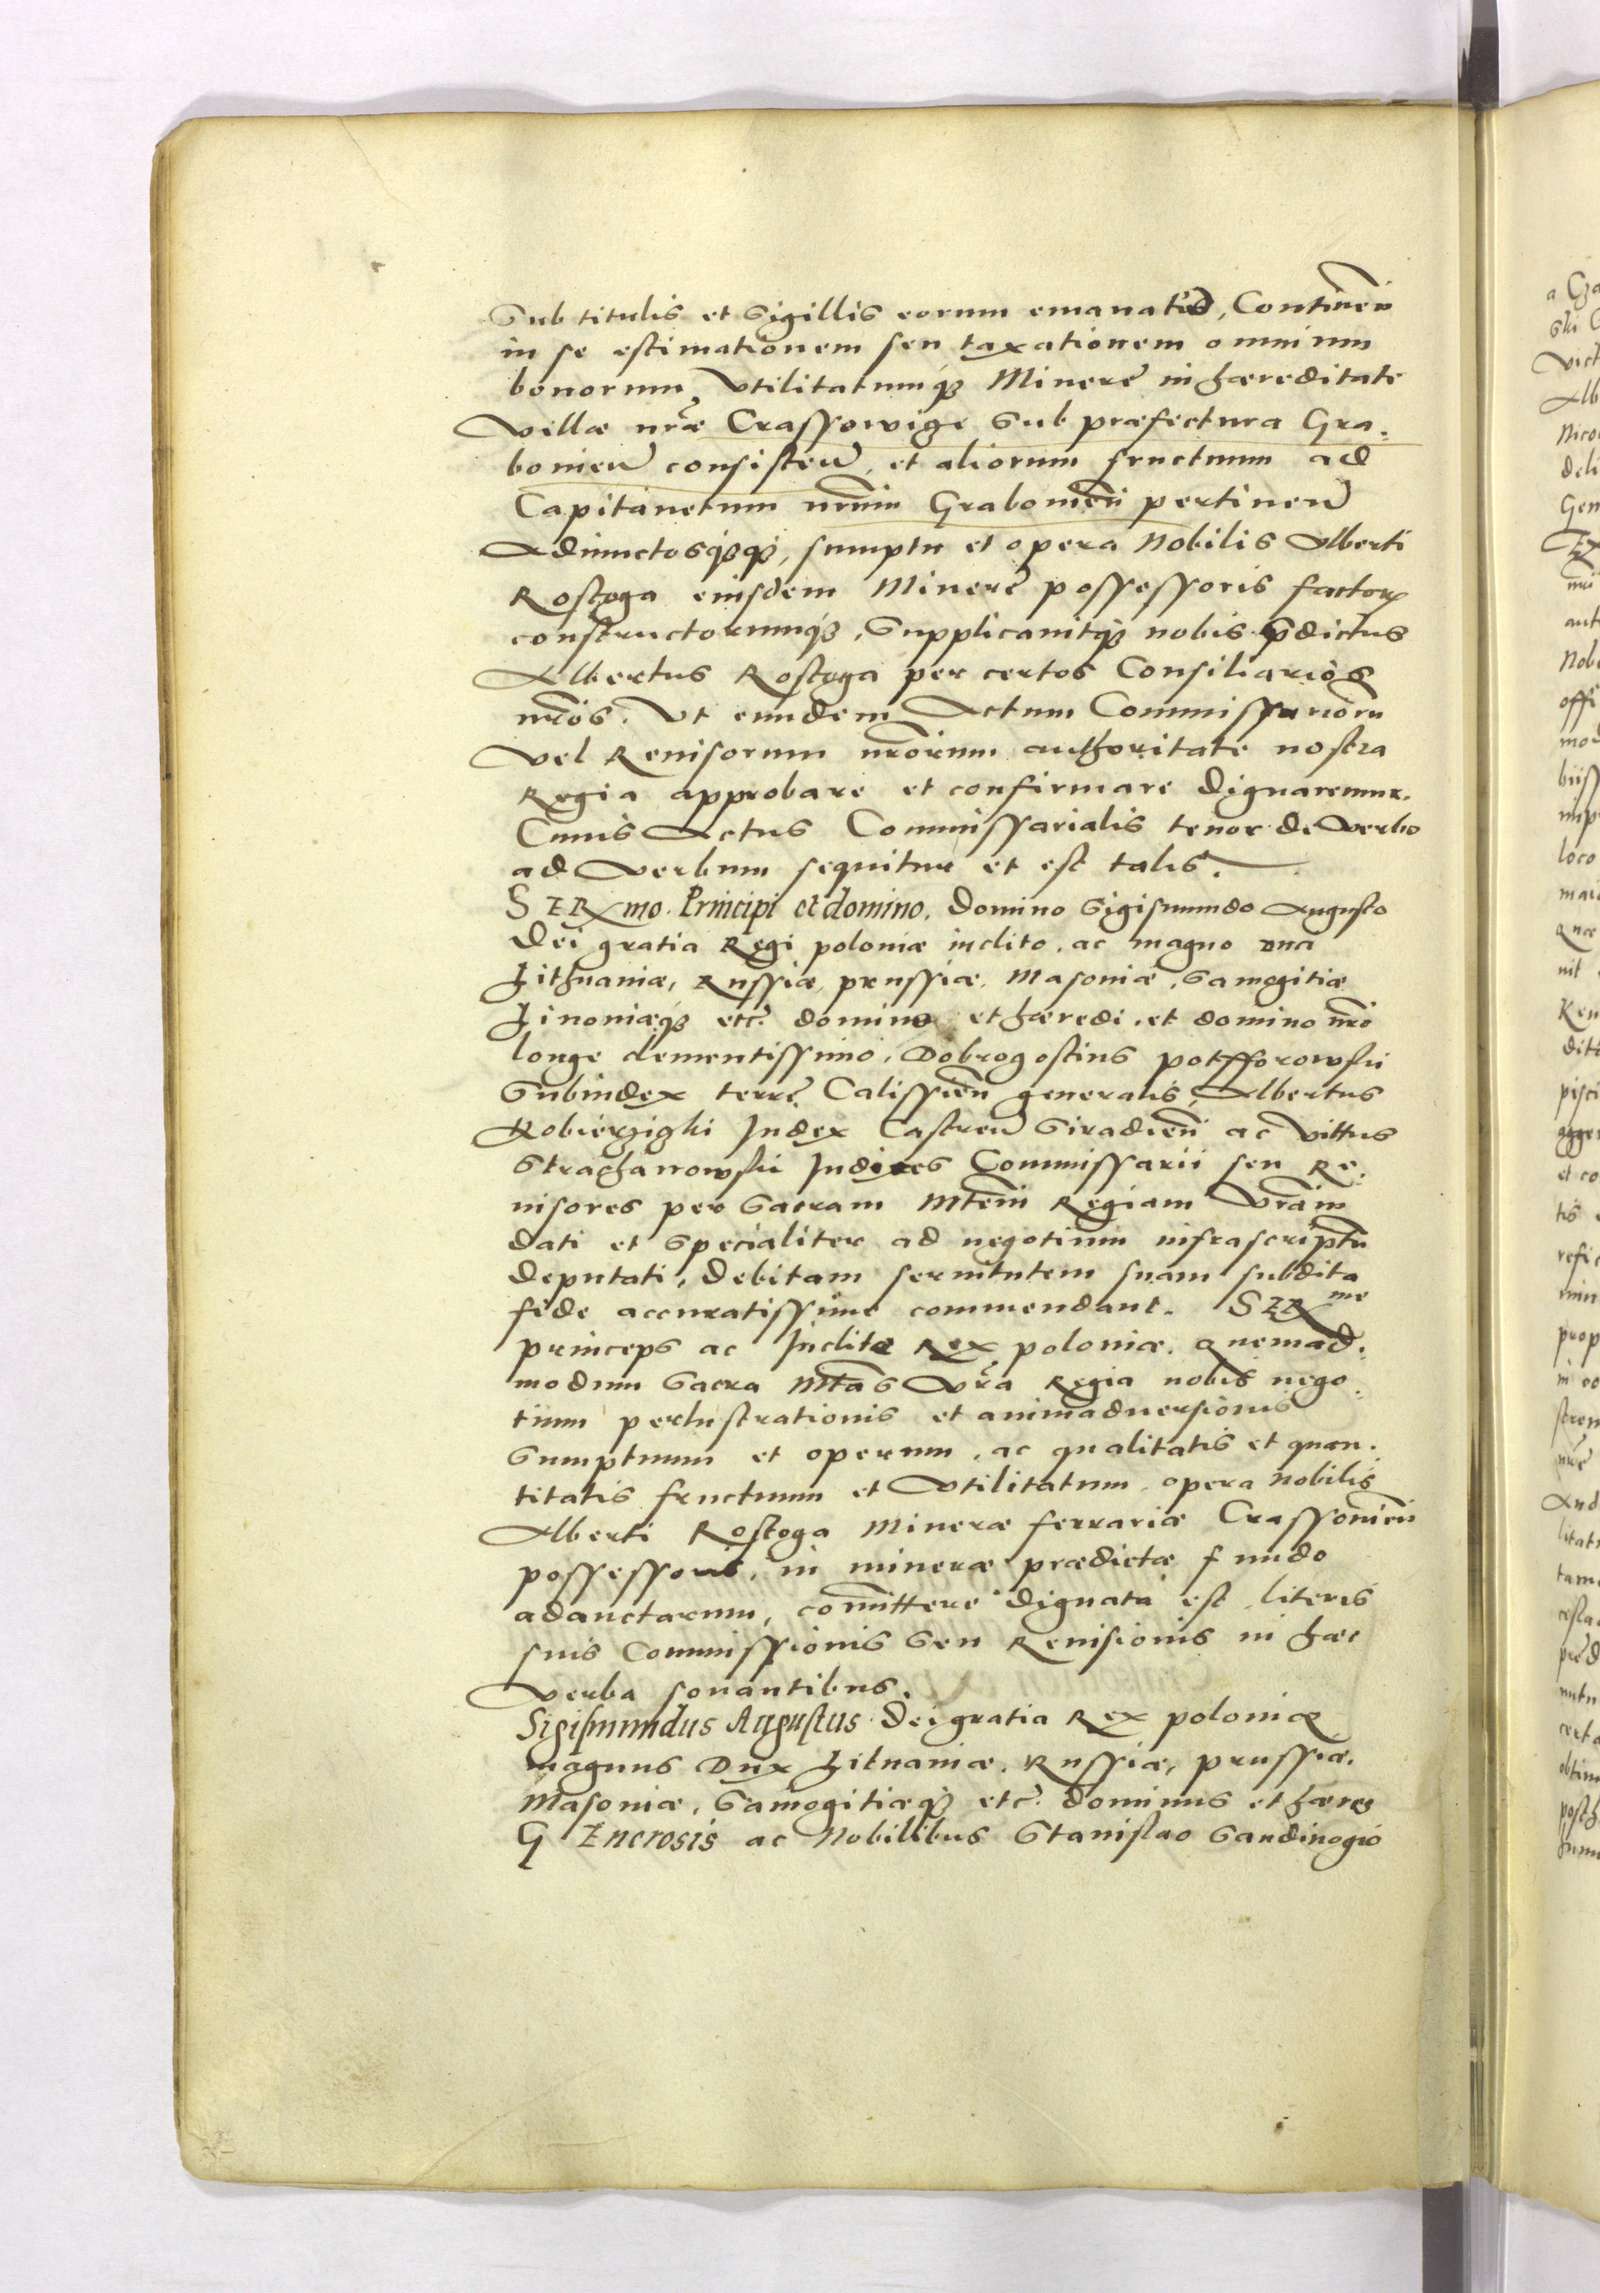 Sub titulis et Sigillis eorum emanatus, Continen
in se estimationem seu taxationem omnium
bonorum, Vtilitatumq₃ Minerę in hæreditate
Villæ nr̃æ Crassowige sub præfectura Gra-
bouien̄ consisten̄, et aliorum fructuum ad
Capitanetum nr̃um Grabouien̄ pertinen̄
Adiunctosq₃q₃, sumptu et opera Nobilis Alberti
Rostoga eiusdem Minerę possessoris factorꝝ
constructorumq₃, Supplicauitq₃ nobis p̄dictus
Albertus Rostoga per certos Consiliarios
nr̃os. Vt eundem Actum Commissariorū
Vel Reuisorum nr̃orum authoritate nostra
Regia approbare et confirmare dignaremur.
Cuius Actus Commissarialis tenor de Verbo
ad Verbum sequitur et est talis.
SERmo. Principi et domino, Domino Sigismundo Augusto
Dei gratia Regi poloniæ inclito, ac magno duci
Lithuaniæ, Russiæ, prussiæ, Masouiæ, Samogitiæ
Liuoniæq₃ etc̃. domino et hæredi, et domino nr̃o
longe clementissimo, Dobrogostius potfforowski
Subiudex terrę Calissien̄ generalis, Albertus
Kobierzighi Iudex Castren̄ Siradien̄ ac Vittus
Strachanowski Iudices Commissarii seu Re-
uisores per Sacram Mtem̄ Regiam Vr̃am
dati et Specialiter ad negotium infrascriptū
deputati, debitam seruitutem suam subdita
fide accuratissime commendant. SERme
princeps ac Inclite Rex poloniæ. Quemad-
modum Sacra Mtas̄ Vr̃a Regia nobis nego-
tium perlustrationis et animaduersionis
Sumptuum et operum, ac qualitatis et quan-
titatis fructuum et Vtilitatum, opera Nobilis
Alberti Rostoga Mineræ ferrariæ Crassouien̄
possessoris, in mineræ prædictæ fundo
adauctarum, com̄ittere dignata est, literis
suis Commissionis Seu Reuisionis in hæc
Verba sonantibus.
Sigismundus Augustus Dei gratia Rex poloniæ
magnus Dux Lituaniæ, Russiæ, prussiæ,
Masouiæ, Samogitiæq₃ etc̃. dominus et hæres
GENerosis ac Nobilibus Stanislao Sandiuogio